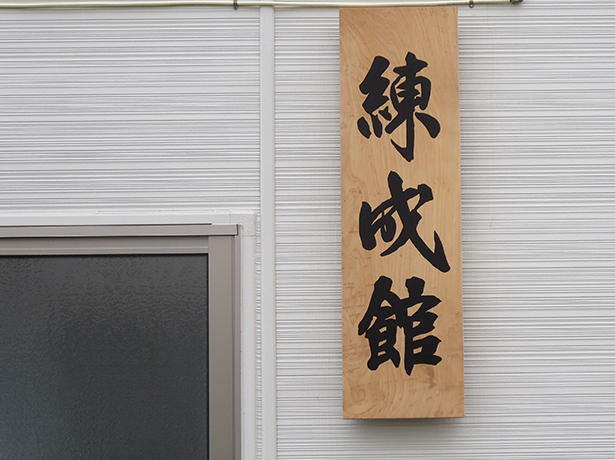 練成館